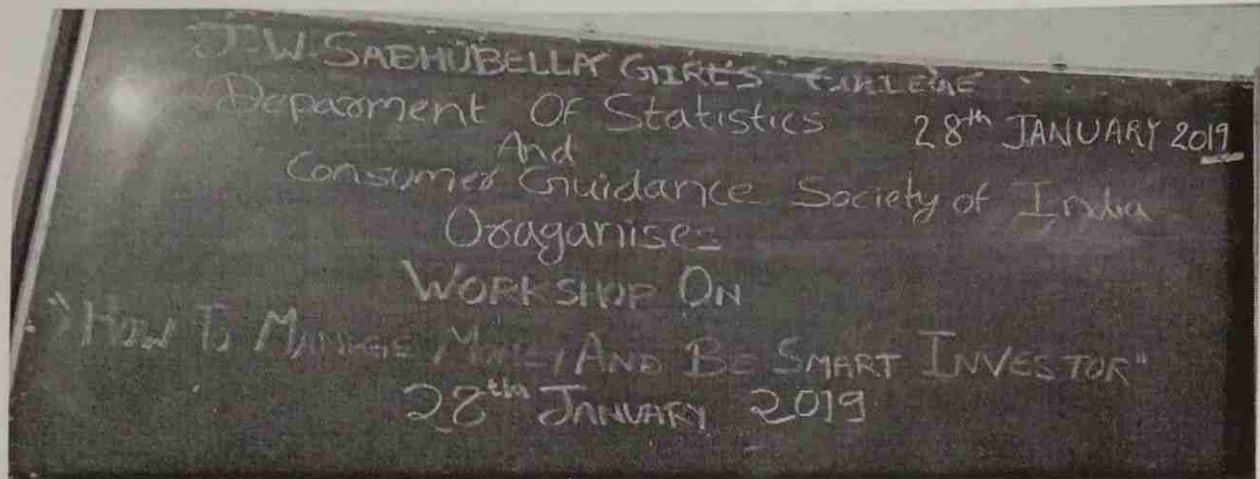 J.W. SABHUBELLA GIRL'S COLLEGE
Deparment Of Statistics
28th JANUARY 2019
And
Consumer Guidance Society of India
Oraganises
WORKSHOP ON
"HOW TO MANAGE MONEY AND BE SMART INVESTOR"
28th JANUARY 2019